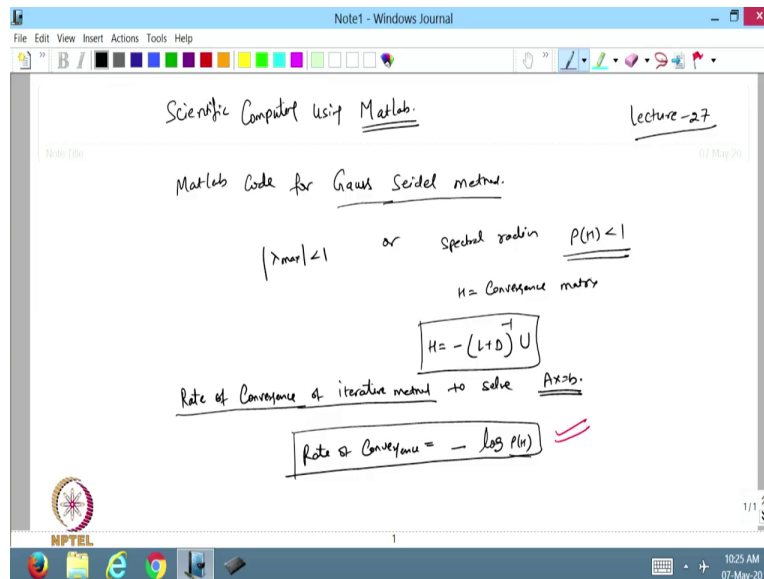 Note1 - Windows Journal
File Edit View Insert Actions Tools Help
Scientific Computing using Matlab.
Lecture-27
Note Title
07-May-20
Matlab Code for Gauss Seidel method.
|λmax| < 1 or spectral radius ρ(H) < 1
H = Convergence matrix
H = - (L+D)^-1 U
Rate of Convergence of iterative method to solve Ax=b.
Rate of Convergence = - log ρ(H)
NPTEL
1
1/1
10:25 AM
07-May-20